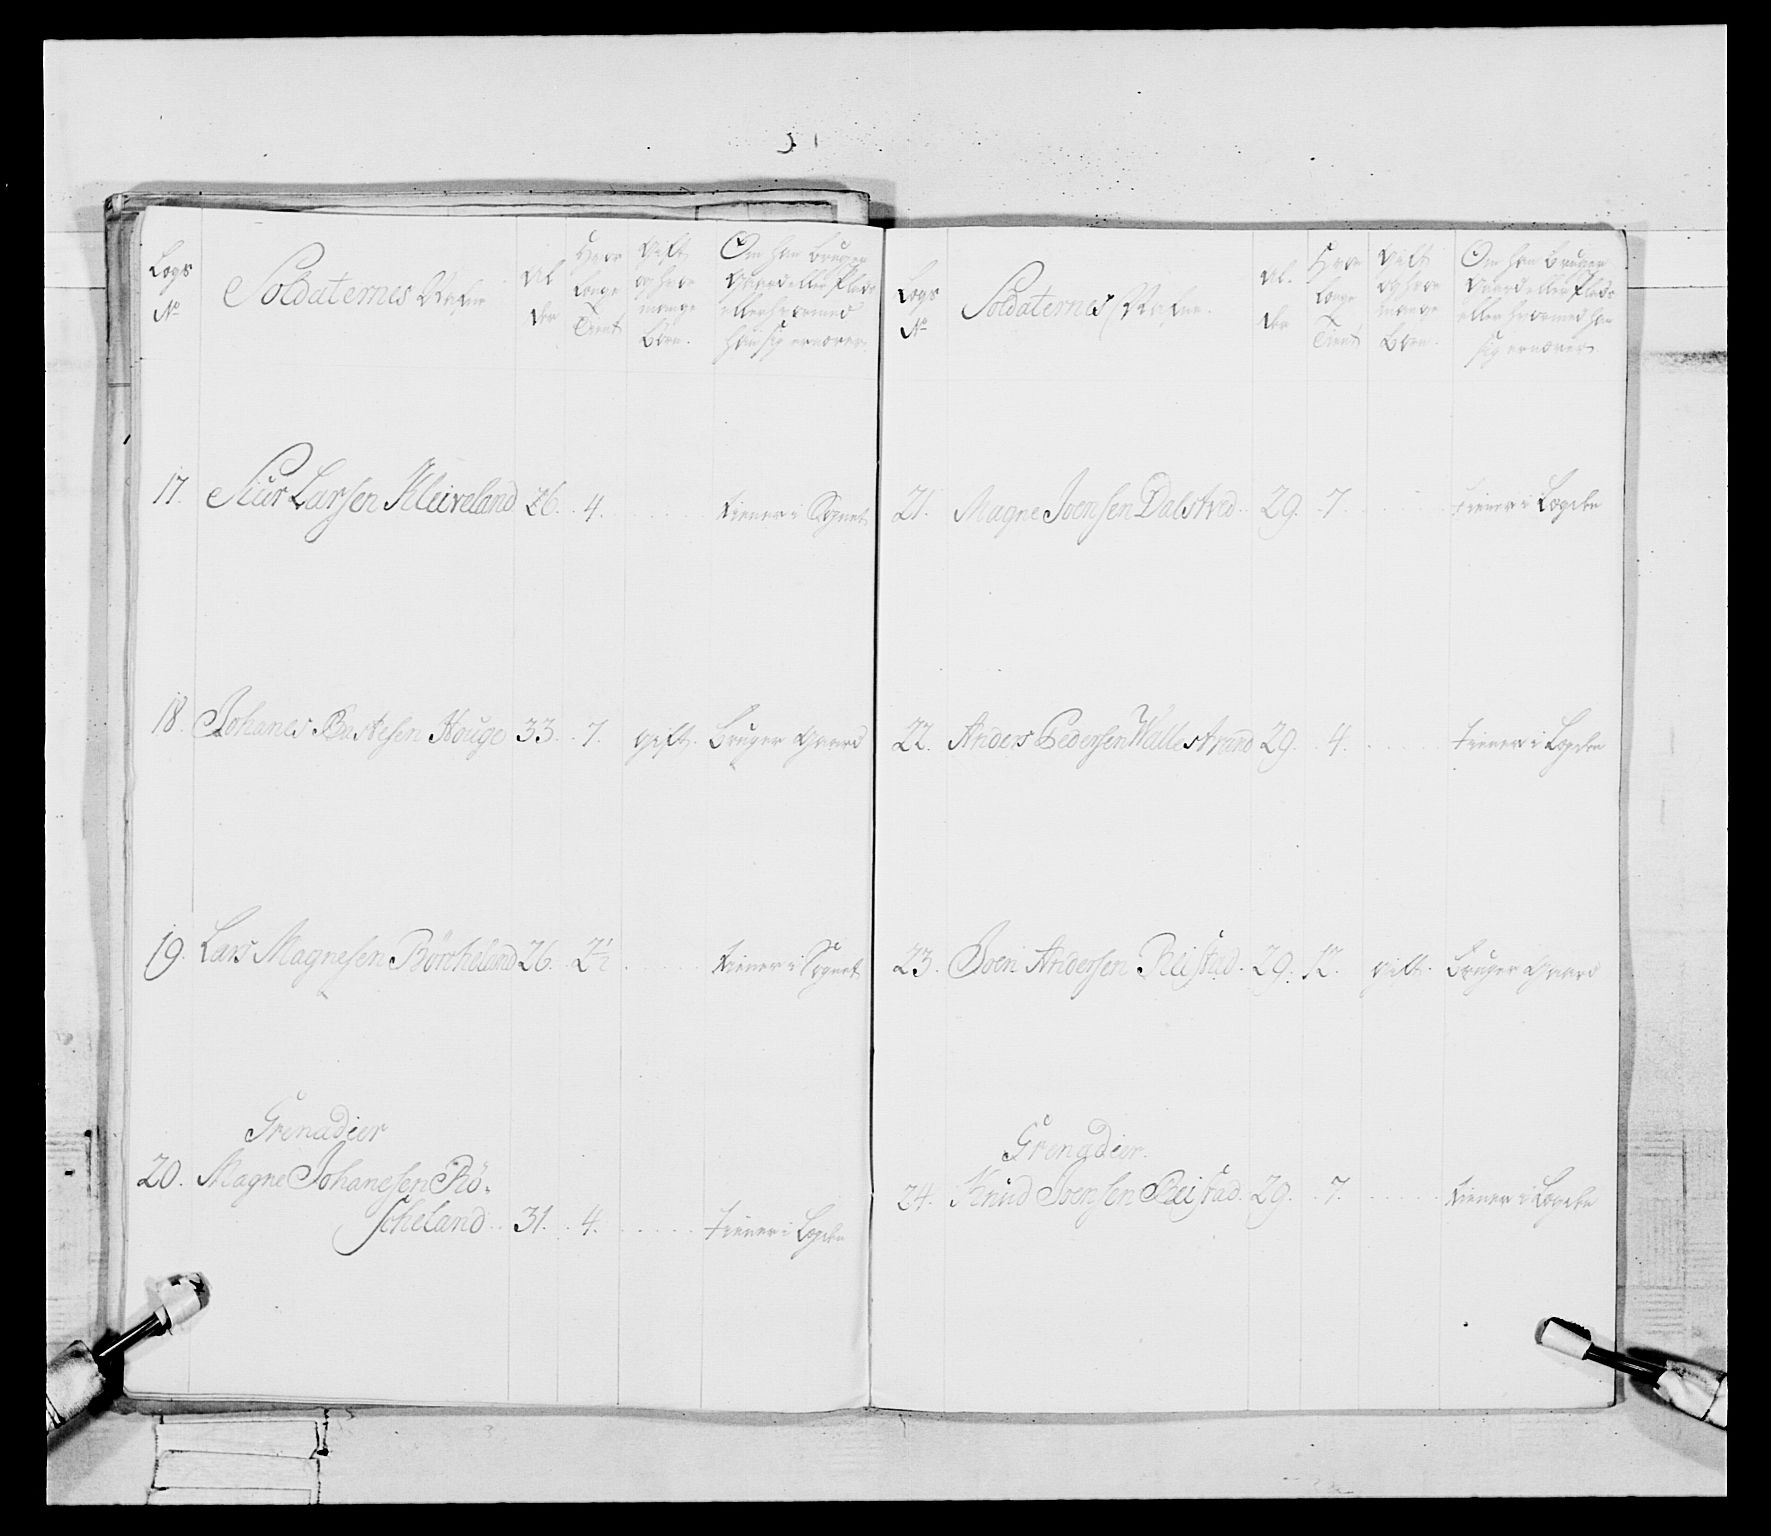 Logs
No
Soldaternes Nafne
Al
der
Hvor
Længe
Tient
gift
og hvor
mange
Børn.
Om han bruger
Gaard eller Plads
eller hvormed
han sig ernærer.
17. Siur Larsen Kleiveland 26. 4. tiener i Sognet
18. Johanes Bastesen Houge 33. 7. gift. Bruger Gaard
19. Lars Magnesen Börcheland 26. 2½ tiener i Sognet
Grenadeer
20. Magne Johanesen Rö-
scheland 31. 4. tiener i Logden
Logs
No
Soldaternes Nafne.
Al-
der
Hvor
Længe
Tient
gift
og hvor
mange
Børn.
Om han bruger
Gaard eller Plads
eller hvormed han
sig ernærer
21. Magne Joensen Dalstved 29. 7. tiener i Logden
22. Anders Pedersen Wallestrand 29. 4. tiener i Logden
23. Joen Andersen Reistad. 29. 12. gift. Bruger Gaard
Grenadeer.
24. Knud Joensen Reistad. 29. 7. tiener i Logden